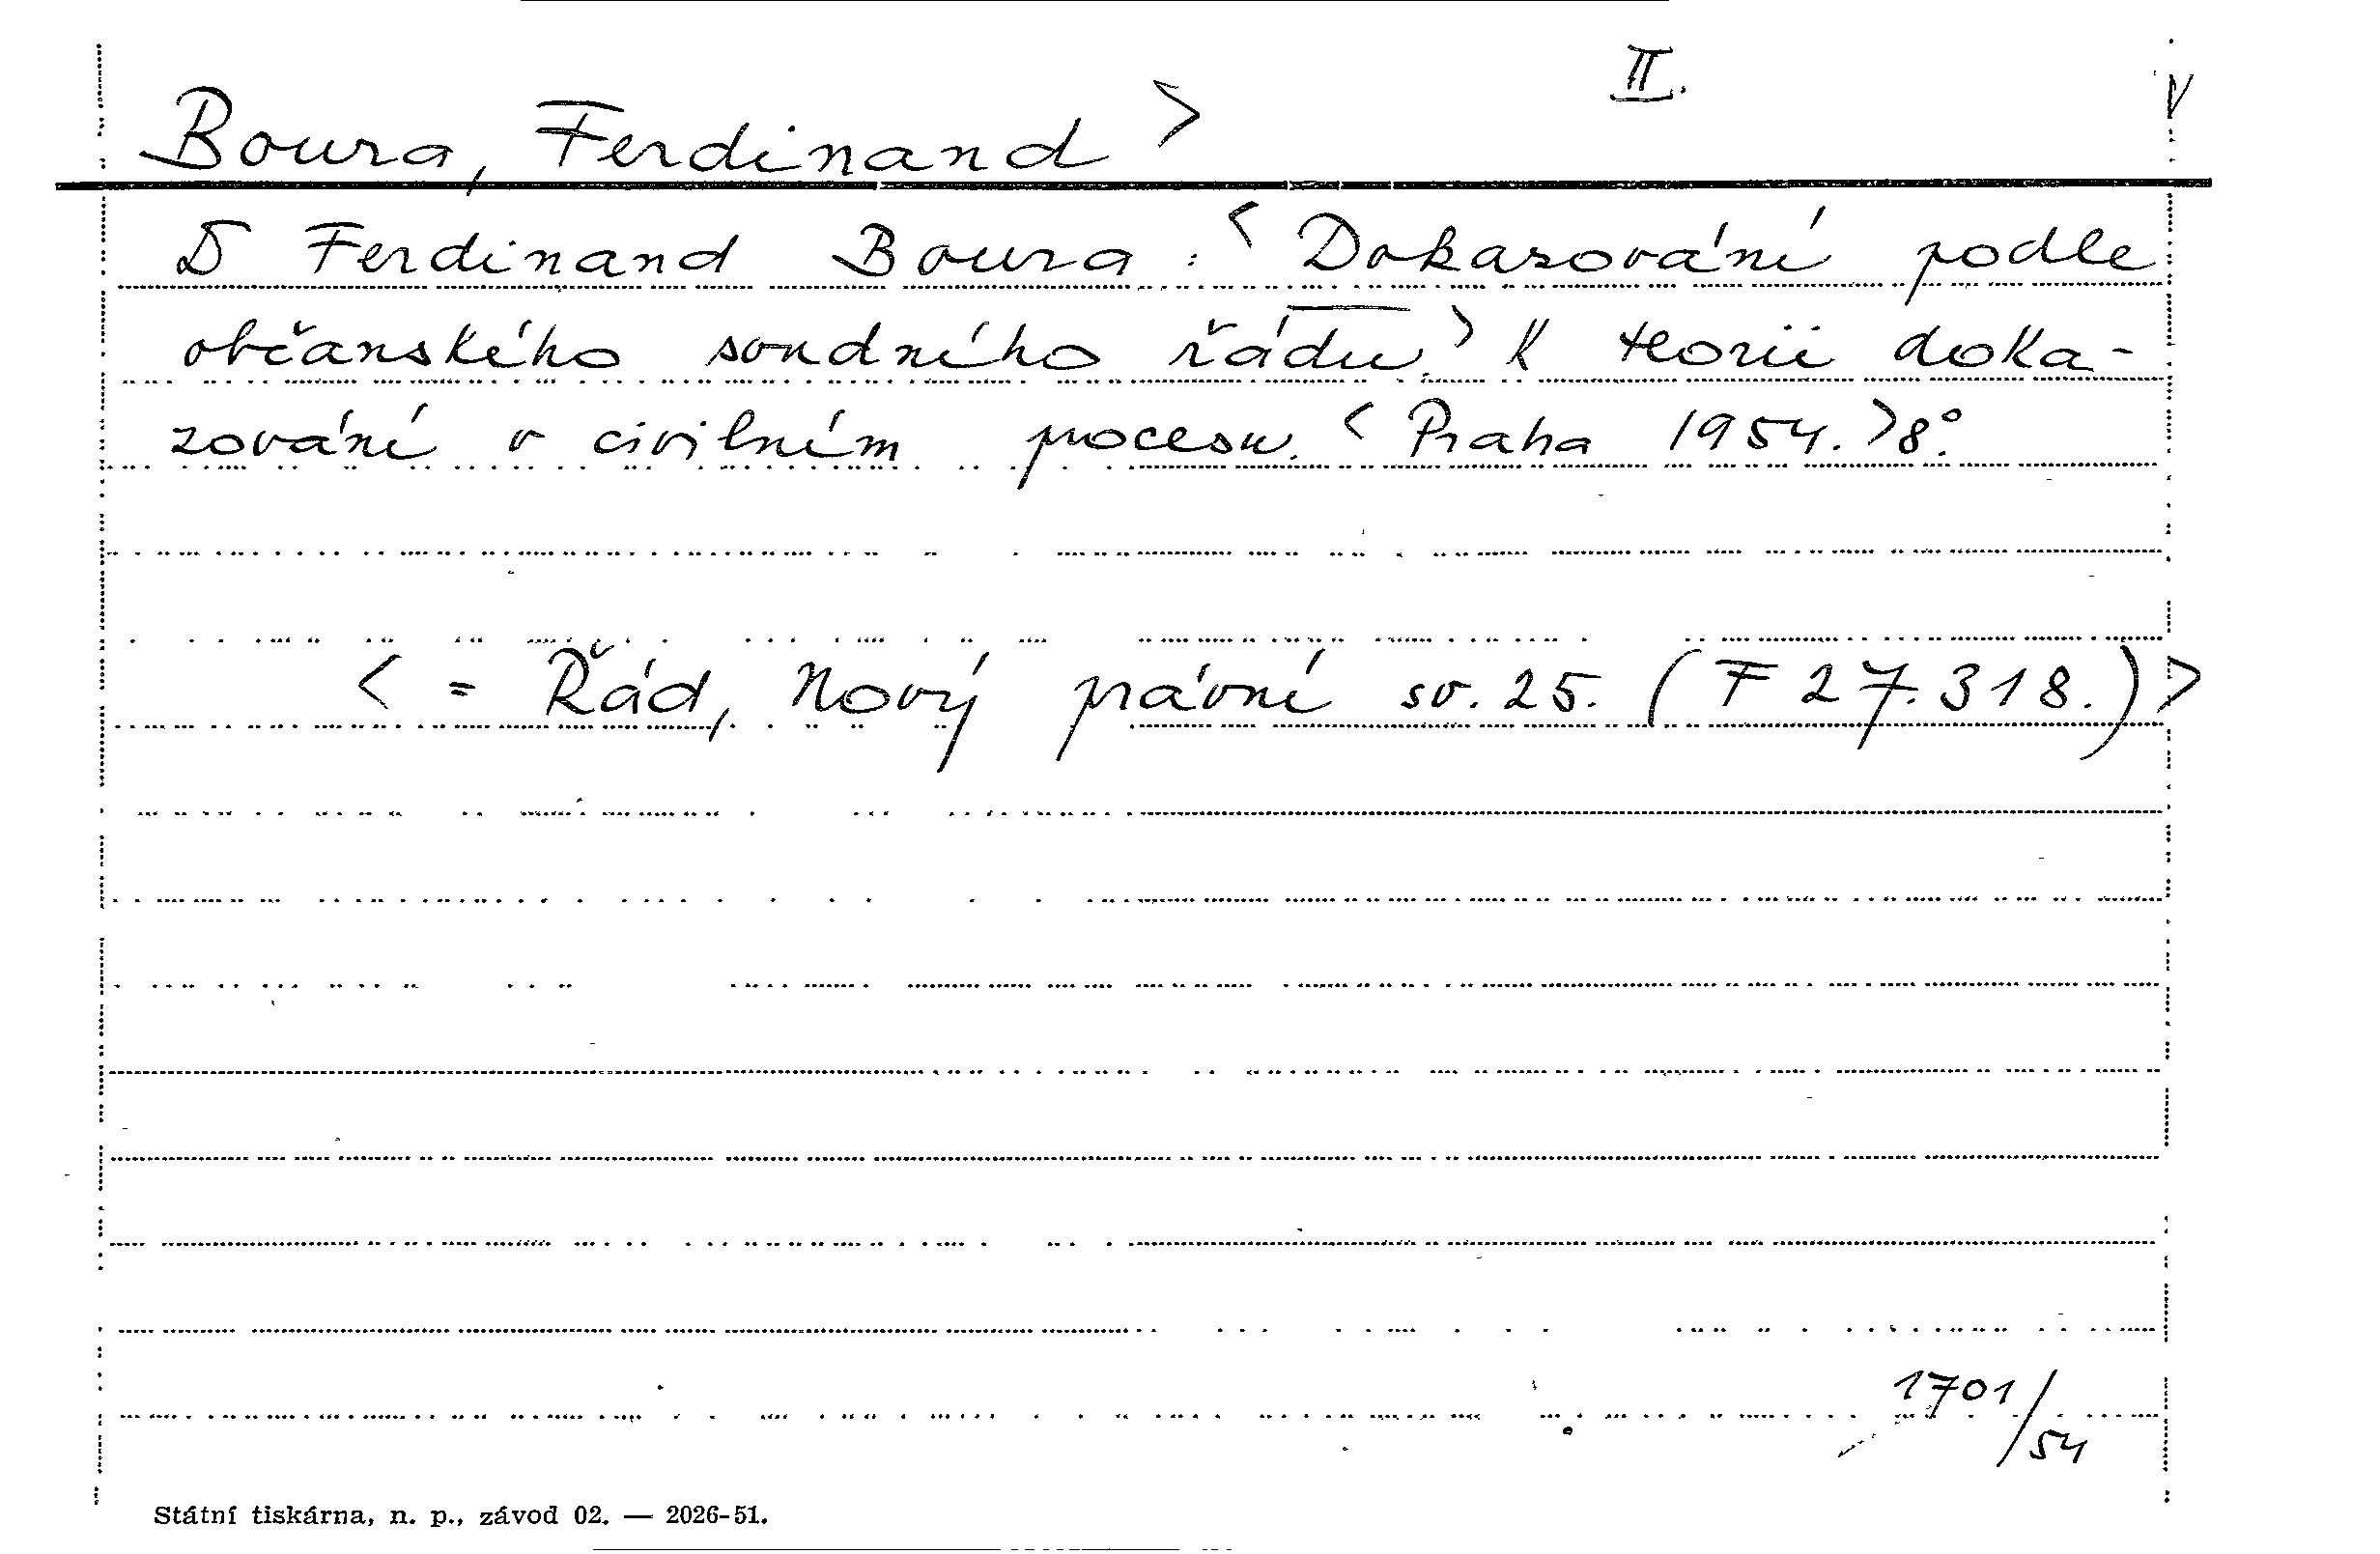 II.
Boura, Ferdinand >
D Ferdinand Boura: <Dokazování podle
občanského soudního řádu.> K teorii doka-
zování v civilním procesu. <Praha 1954.> 8°.
< = Řád, Nový právní sv. 25. (F 27.318.)>
1701/54
Státní tiskárna, n. p., závod 02. — 2026-51.